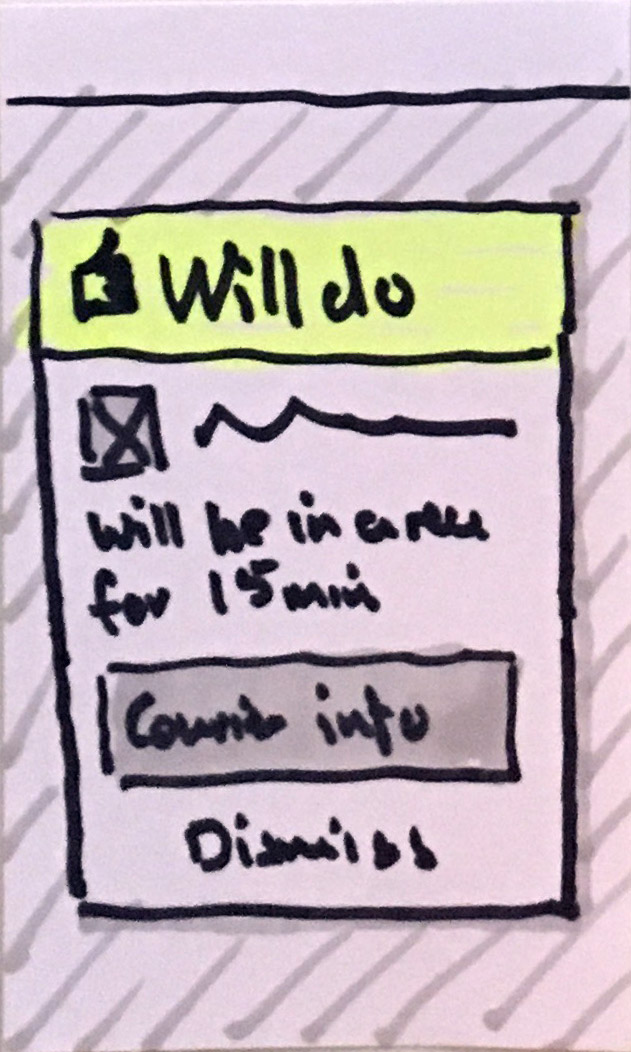 Will do
will be in area
for 15 min
Courier info
Dismiss